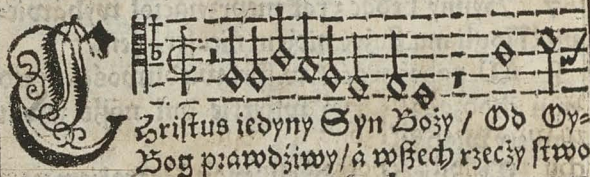 Christus iedyny Syn Boży / Od Oy-
Bog prawdźiwy/ á wszech rzeczy stwo